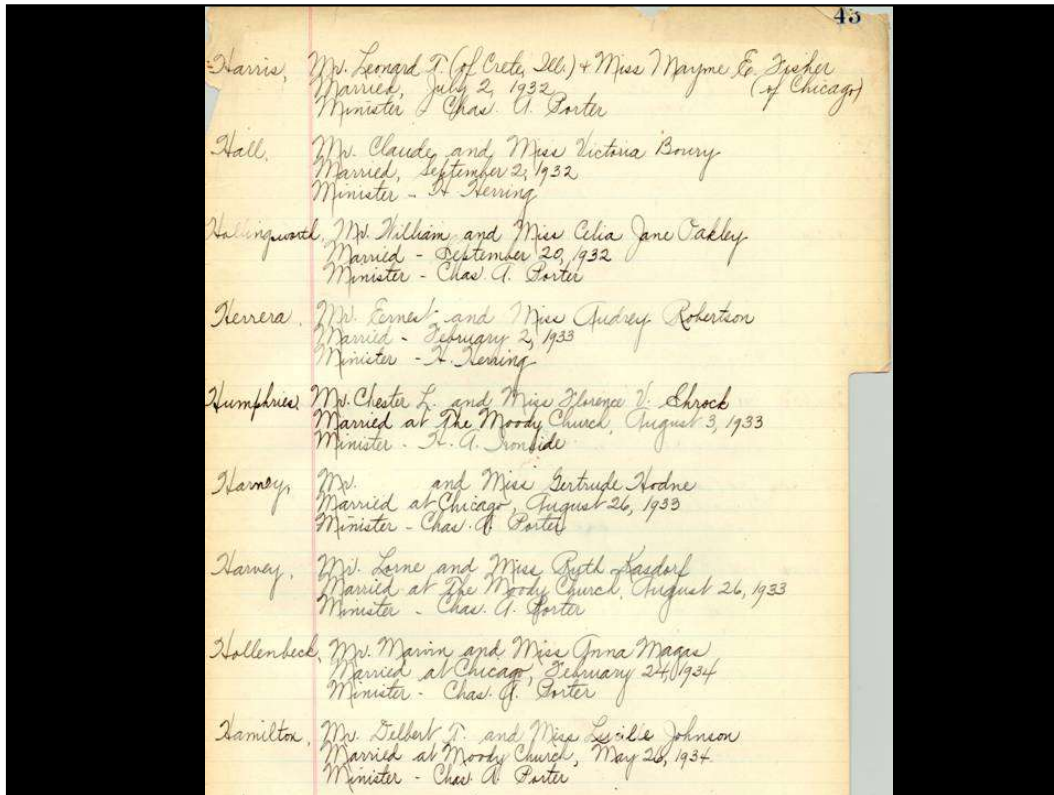 43
Harris, Mr. Leonard T. (of Crete, Ill.) + Miss Mayme E. Fisher
Married, July 2, 1932 (of Chicago)
Minister - Chas. A. Porter
Hall, Mr. Claude and Miss Victoria Boury
Married, September 2, 1932
Minister - H. Herring
Hollingsworth, Mr. William and Miss Celia Jane Oakley
Married - September 20, 1932
Minister - Chas. A. Porter
Herrera, Mr. Ernest and Miss Audrey Robertson
Married - February 2, 1933
Minister - H. Herring
Humphries, Mr. Chester L. and Miss Florence V. Shrock
Married at The Moody Church, August 3, 1933
Minister - H. A. Ironside
Harney, Mr. and Miss Gertrude Hodne
Married at Chicago, August 26, 1933
Minister - Chas. A. Porter
Harvey, Mr. Lorne and Miss Ruth Kasdorf
Married at The Moody Church, August 26, 1933
Minister - Chas. A. Porter
Hollenbeck, Mr. Marvin and Miss Anna Magas
Married at Chicago, February 24, 1934
Minister - Chas. A. Porter
Hamilton, Mr. Delbert T. and Miss Lucille Johnson
Married at Moody Church, May 26, 1934.
Minister - Chas. A. Porter